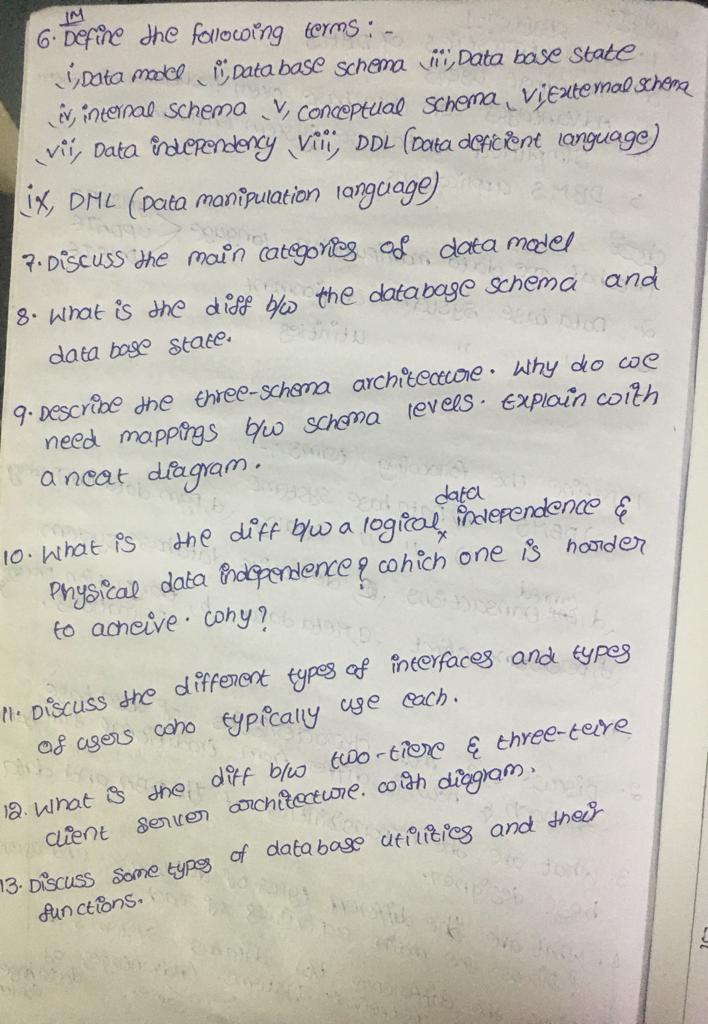 1M
6. Define the following terms :-
i, Data model ii, Data base schema iii, Data base state
iv, internal schema v, conceptual schema vi, External schema
vii, Data independency viii, DDL (Data deficient language)
ix, DML (Data manipulation language)
7. Discuss the main categories of data model
8. What is the diff b/w the database schema and
data base state.
9. Describe the three-schema architecture. Why do we
need mappings b/w schema levels. Explain with
a neat diagram.
10. What is the diff b/w a logical data independence &
Physical data independence? which one is harder
to acheive. why?
11. Discuss the different types of interfaces and types
of users who typically use each.
12. What is the diff b/w two-tiere & three-teire
client server architecture. with diagram.
13. Discuss some types of database utilities and their
functions.